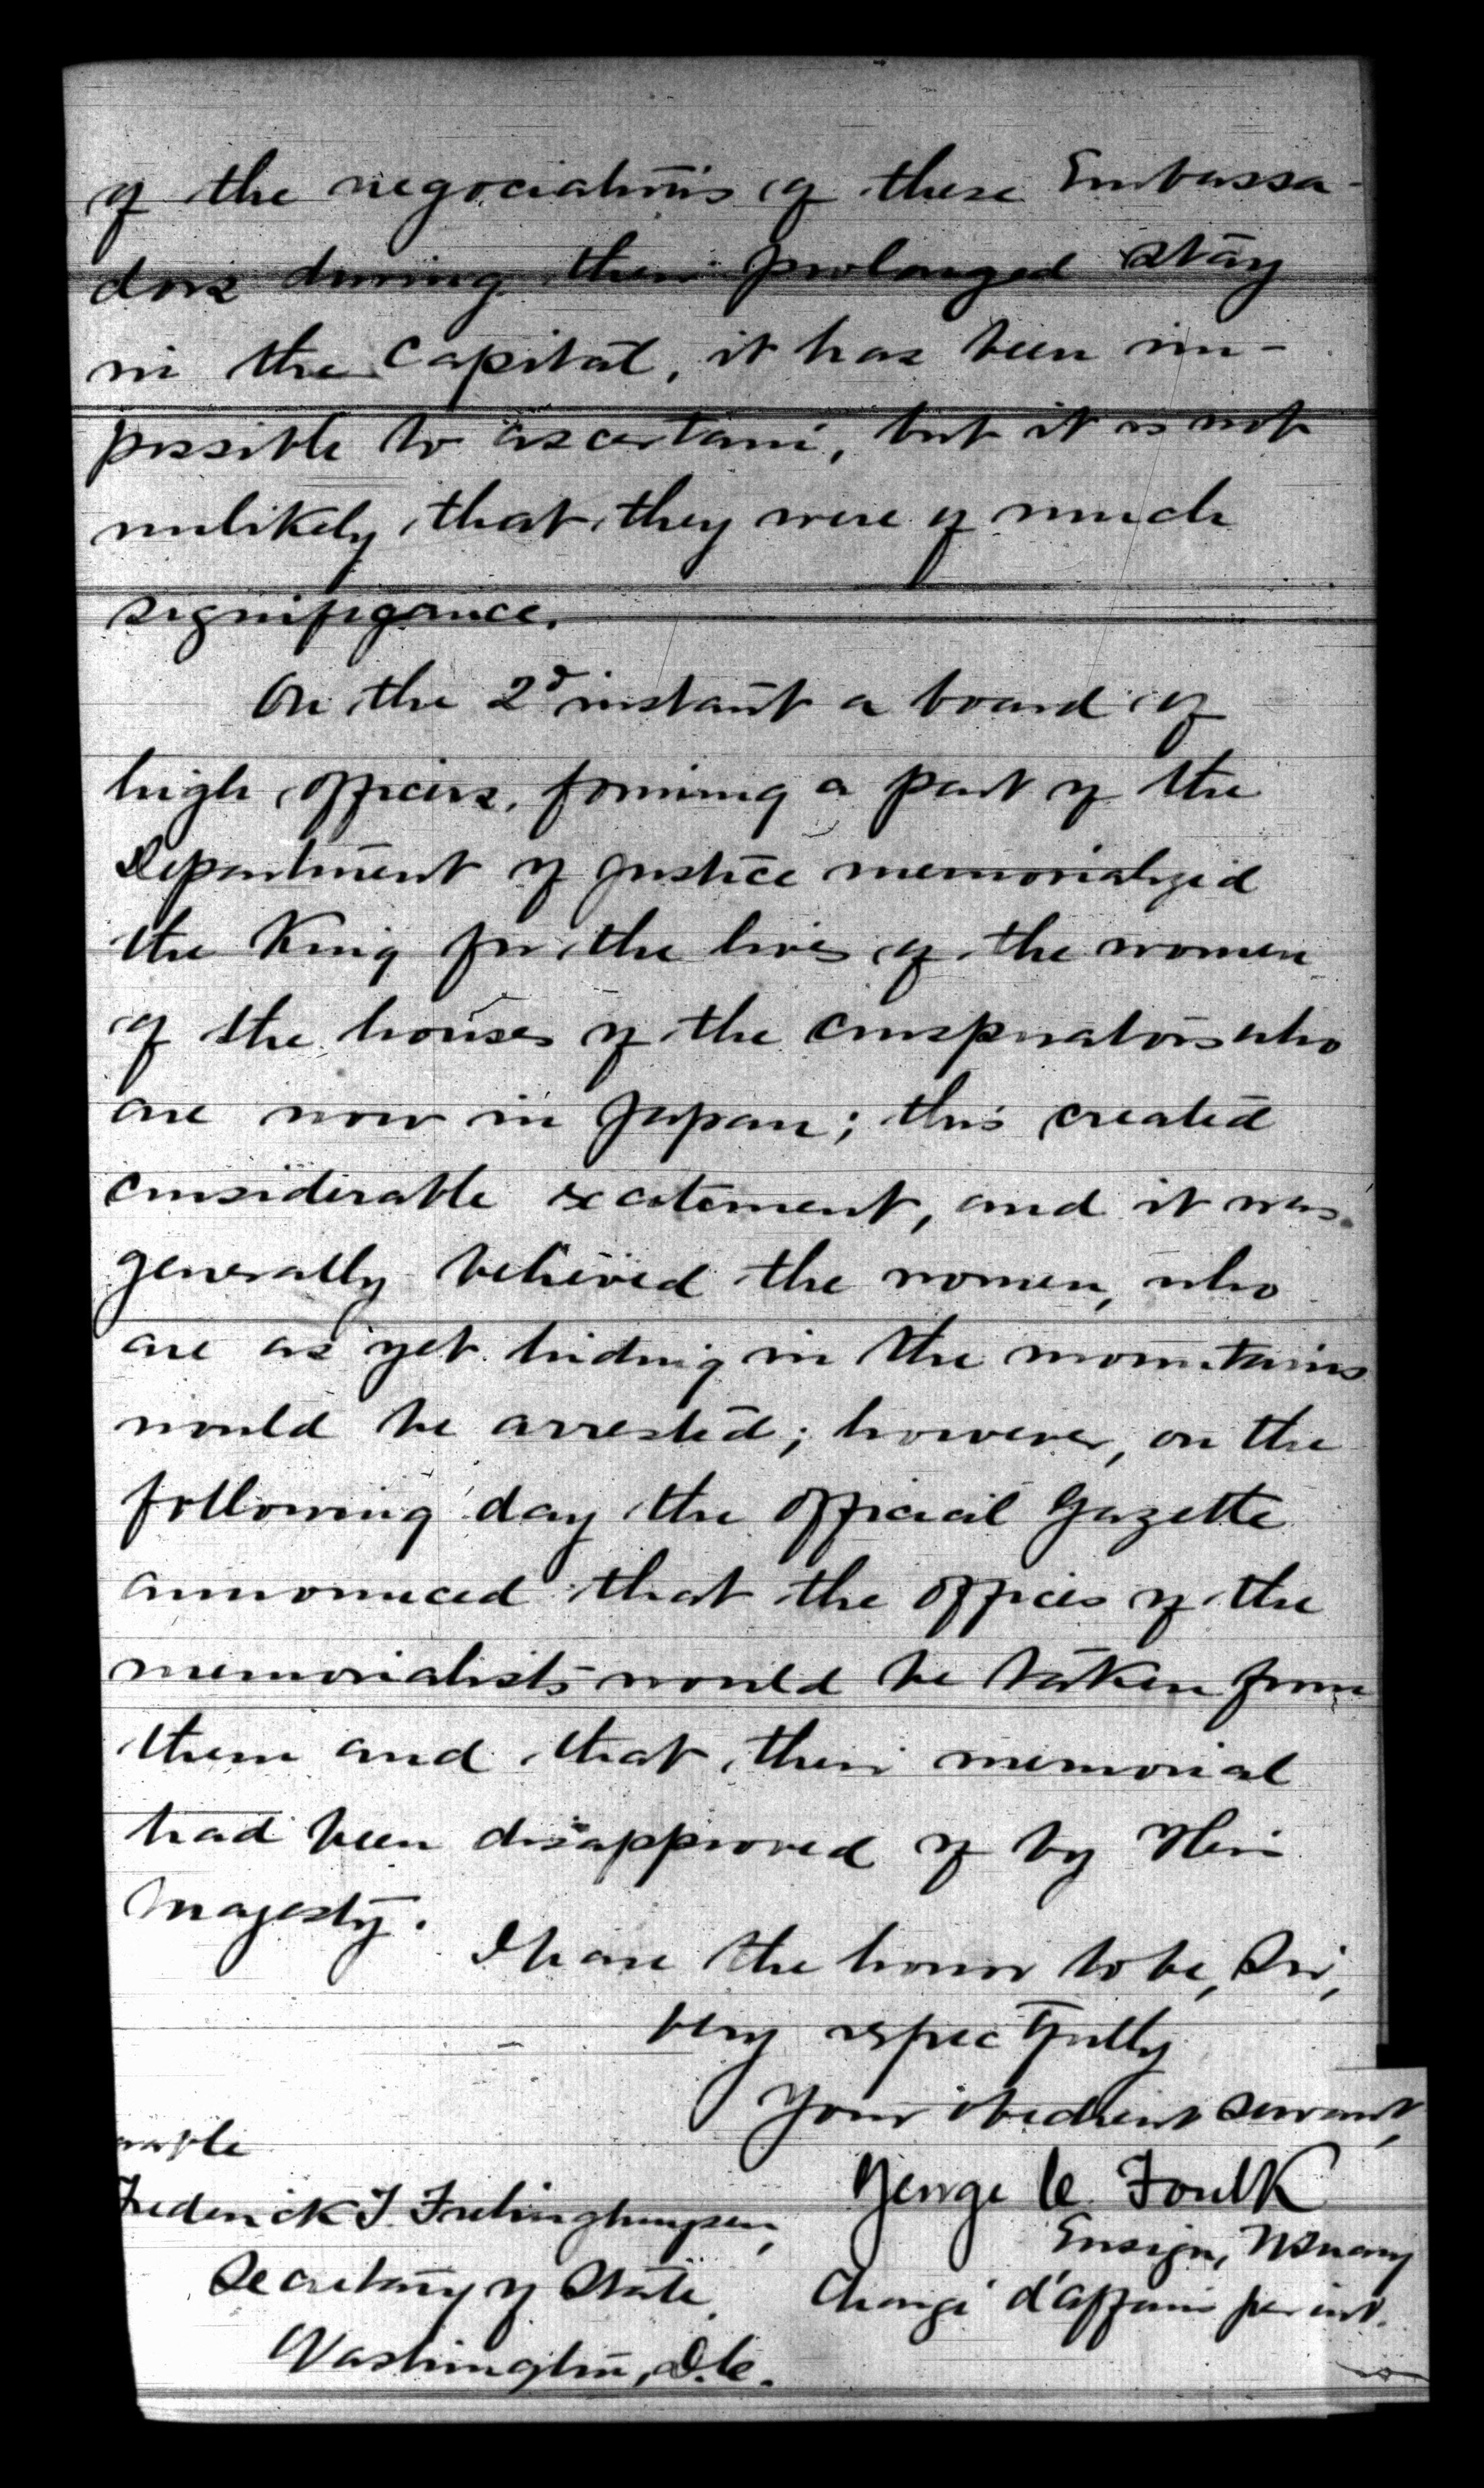 of the negociations of these Embassa-
dors during their prolonged stay
in the Capital, it has been im-
possible to ascertain, but it is not
unlikely that they were of much
signifigance.
On the 2d instant a board of
high officers, forming a part of the
Department of Justice memorialized
the King for the lives of the women
of the houses of the conspirators who
are now in Japan; this created
considerable excitement, and it was
generally believed the women, who
are as yet hiding in the mountains
would be arrested; however, on the
following day the Official Gazette
announced that the offices of the
memorialists would be taken from
them and that their memorial
had been disapproved of by His
Majesty.
I have the honor to be, Sir,
very respectfully
Your obedient servant,
George C. Foulk
Frederick T. Frelinghuysen,
Ensign, U.S. Navy
Secretary of State.
Chargé d'affaires per int.
Washington, D.C.